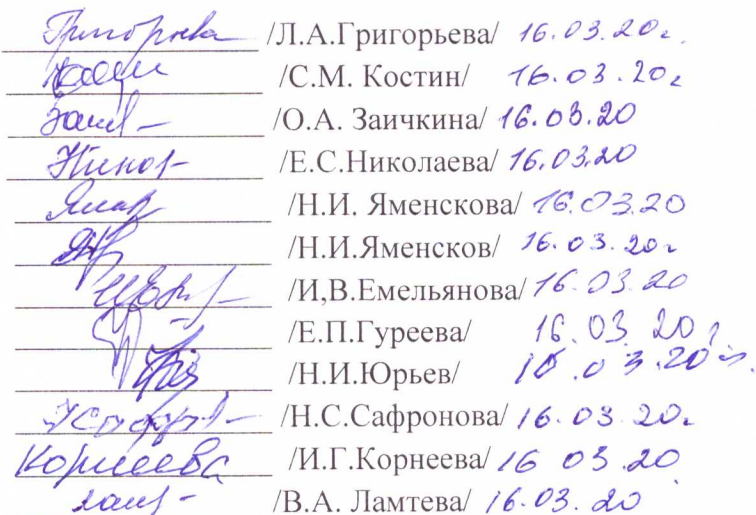 Григорьева /Л.А.Григорьева/ 16.03.20г.
/С.М. Костин/ 16.03.20г
/О.А. Заичкина/ 16.03.20
/Е.С.Николаева/ 16.03.20
/Н.И. Яменскова/ 16.03.20
/Н.И.Яменсков/ 16.03.20г
/И,В.Емельянова/ 16.03.20
/Е.П.Гуреева/ 16.03.20г
/Н.И.Юрьев/ 16.03.20г.
/Н.С.Сафронова/ 16.03.20г
Корнеева /И.Г.Корнеева/ 16 03.20
/В.А. Ламтева/ 16.03.20